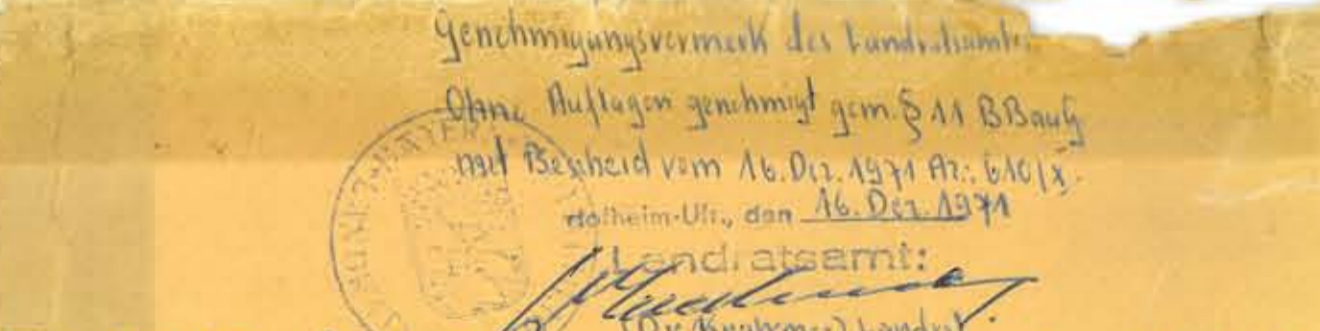 Genehmigungsvermerk des Landratsamtes
Ohne Auflagen genehmigt gem. § 11 BBauG
mit Bescheid vom 16. Dez. 1971 Az.: 610/X.
Hofheim-Ufr., den 16. Dez. 1971
Landratsamt:
Landrat